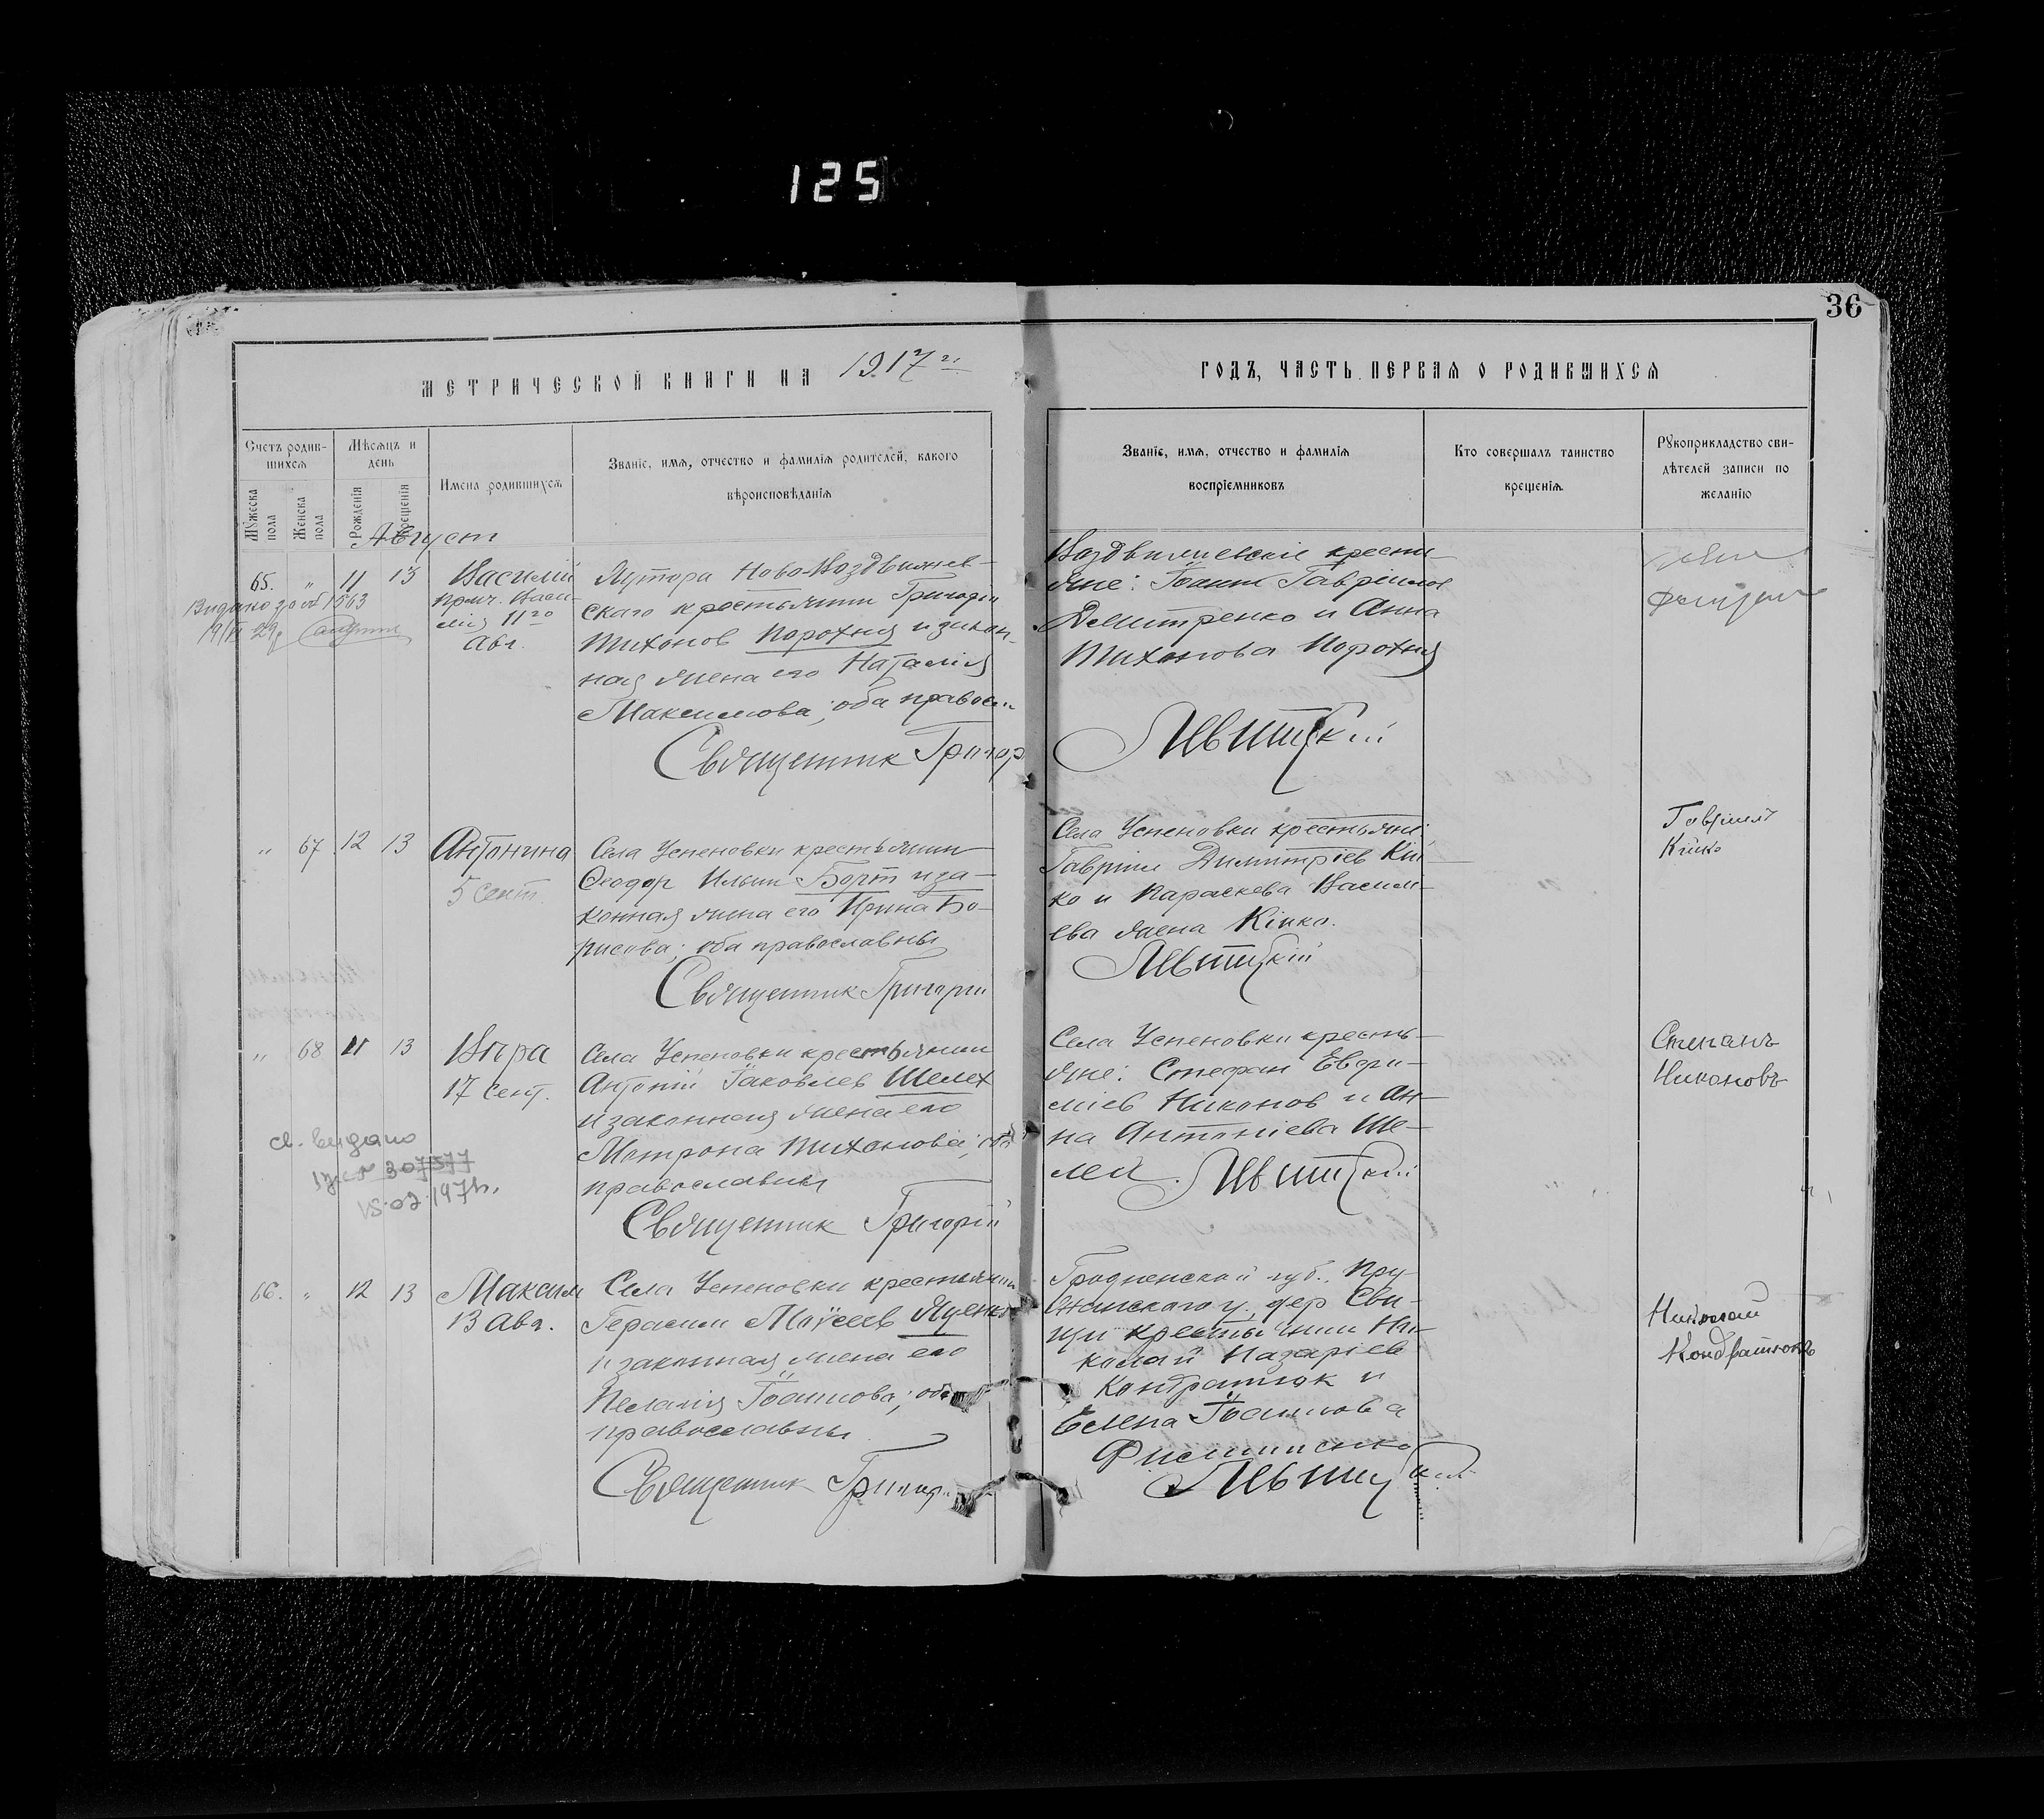 125
36
МЕТРИЧЕСКОЙ КНИГИ НА 1917
ГОДЪ, ЧАСТЬ ПЕРВАЯ О РОДИВШИХСЯ
Счетъ родив-
шихся
Мужеска пола
Женска пола
Мѣсяцъ и
день
Рожденія
Крещенія
Имена родившихся
Званіе, имя, отчество и фамилія родителей, какого
вѣроисповѣданія
Званіе, имя, отчество и фамилія
воспріемниковъ
Кто совершалъ таинство
крещенія
Рукоприкладство сви-
дѣтелей записи по
желанію
Август
65. " 11 13
Василій
11го
Авг.
Хутора Ново-Воздвижев-
скаго крестьянин Григорій
Тихонов Порохня и закон-
ная жена его Наталія
Максимова; оба правосл
Священник Григор
Воздвижевскіе крестья-
яне: Іоанн Гавріилов
Дмитренко и Анна
Тихонова Порохня
Явитскій
" 67 12 13
Антонина
5 Сент.
Села Успеновки крестьянин
Ѳеодор Ильин Борт и за-
конная жена его Ирина Бо-
рисова; оба православны
Священник Григорій
Села Успеновки крестьяне:
Гавріил Димитріев Кій-
ко и Параскева Василі-
ева жена Кійко.
Явитскій
Гавріилъ
Кійко
" 68 11 13
Вѣра
17 Сент.
Села Успеновки крестьянин
Антоній Іаковлев Шелех
и законная жена его
Матрона Тихонова; оба
православны
Священник Григорій
Села Успеновки кресть-
яне: Стефан Евфи-
міев Никонов и Ан-
на Антоніева Ше-
лех.
Явитскій
Степанъ
Никоновъ
св. видано
307577
15.02.197
66. " 12 13
Максим
13 Авг.
Села Успеновки крестьянин
Герасим Моисеев Яценко
и законная жена его
Пелагія Іоаннова; оба
православны
Священник Григор
Гродненской губ., Пру-
жанскаго у. дер. Сви-
щи крестьянин Ни-
колай Назаріев
Кондратюк и
Елена Іоаннова
Явитскій
Николай
Кондратюкъ